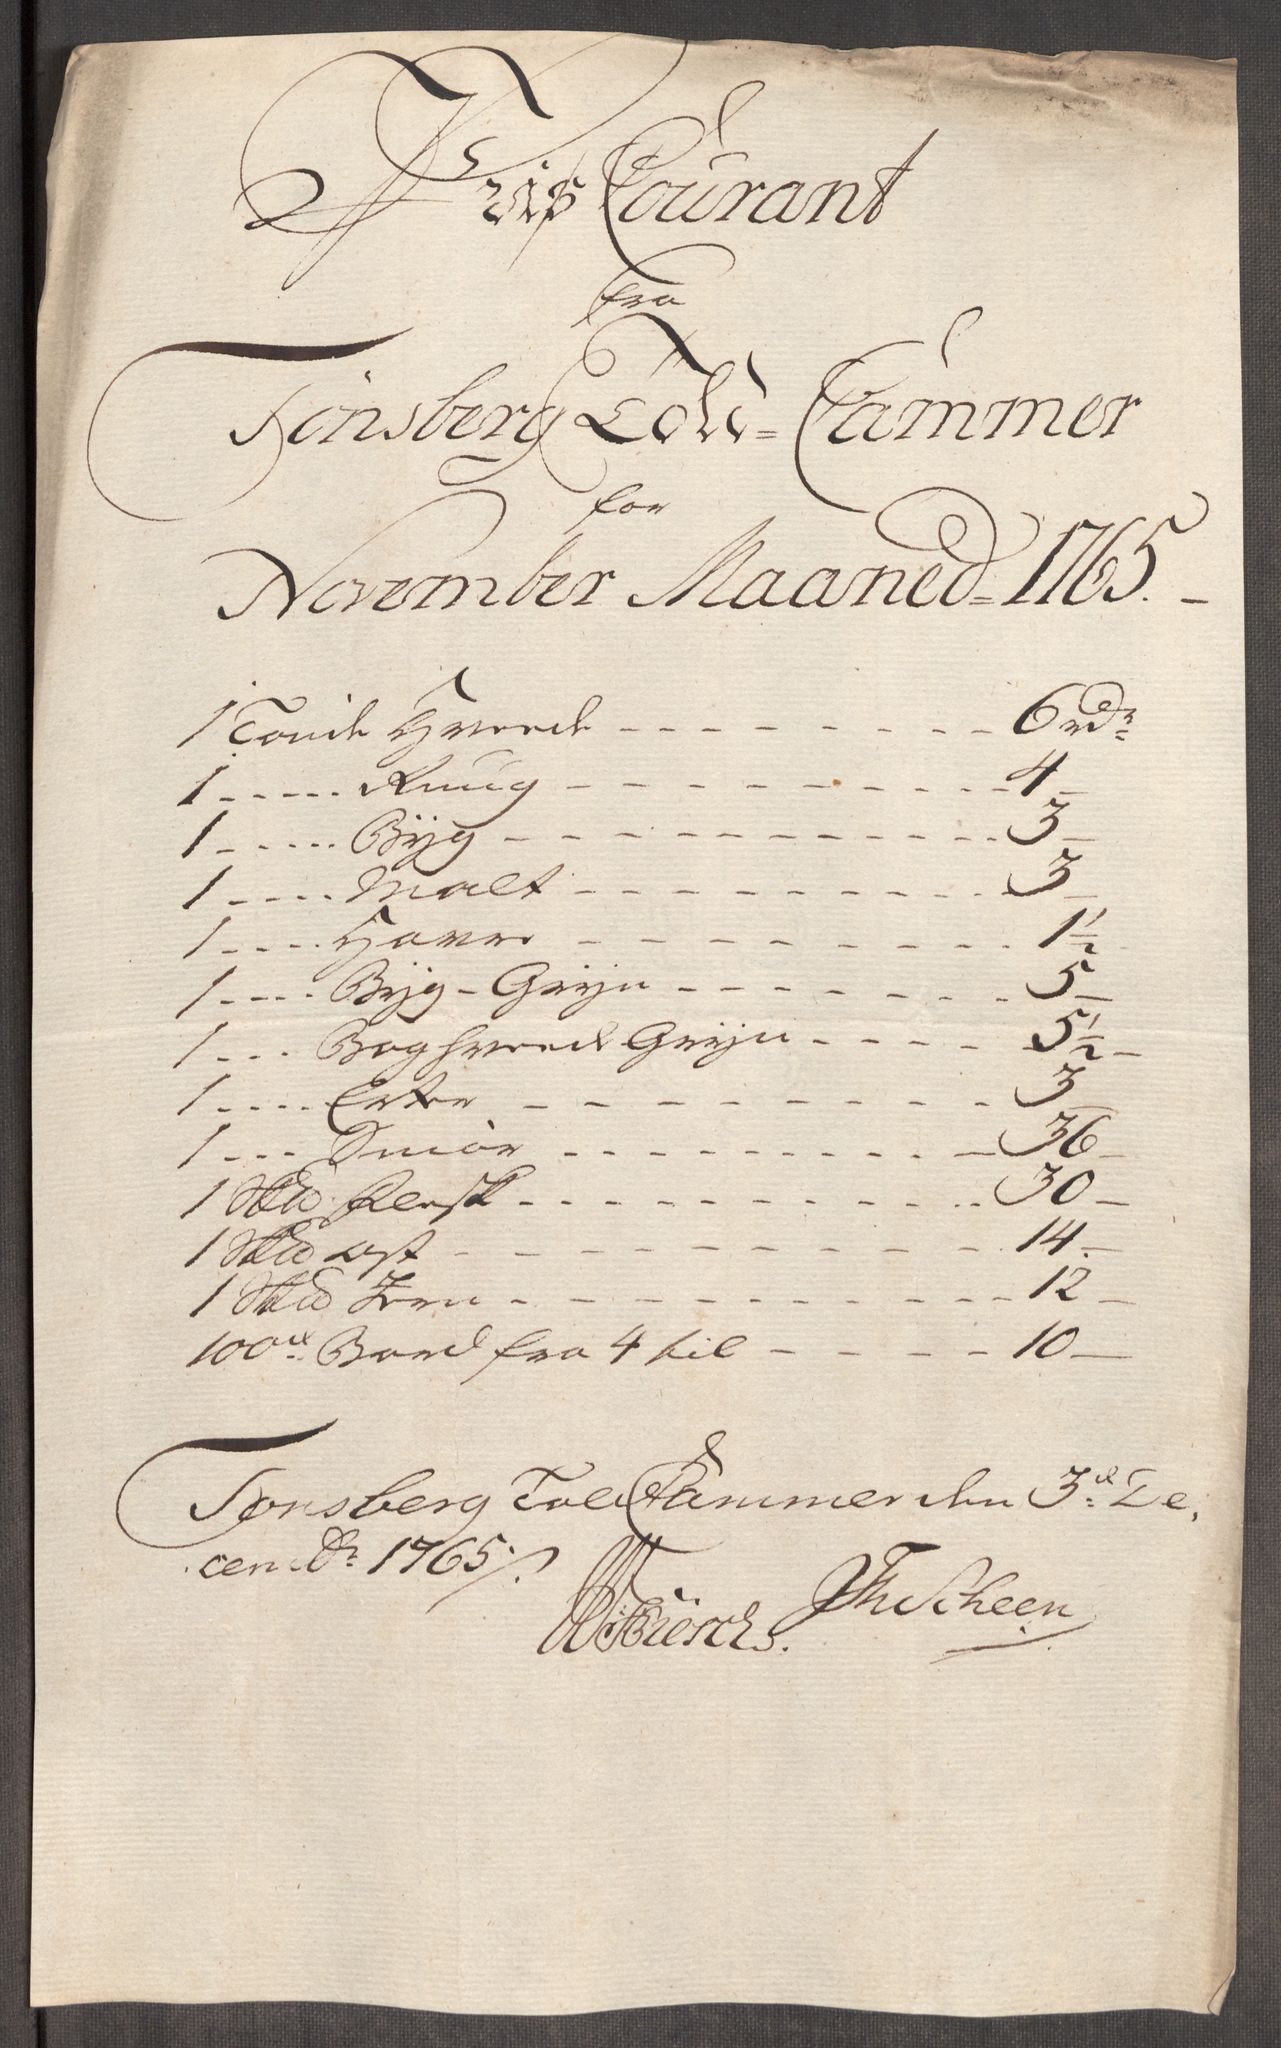 Priis Courant
fra
Tönsberg Told=Cammer
for
November Maaned=1765.
1 Tönde Hvede - - - - - - - - 6 rdr
1 - - - - - Rüug - - - - - - - - - - 4 -
1 - - - - - Byg - - - - - - - - - - - 3 -
1 - - - - - Malt - - - - - - - - - - 3 -
1 - - - - Havre - - - - - - - - - 1 1/2
1 - - - - Byg-Gryn - - - - - - - 5 -
1 - - - Boghvede Gryn - - - - - 5 1/2 -
1 - - - - Erter - - - - - - - - - 3
1 - - - Smör - - - - - - - - - - 36 -
1 Fersk - - - - - - - - - - - 30 -
1 ost - - - - - - - - - - - 14 -
1 Jern - - - - - - - - - - 12 -
100de Bord fra 4 til - - - - - 10 -
Tønsberg Told Cammer den 3de De,
cembr 1765 /.
Scheen